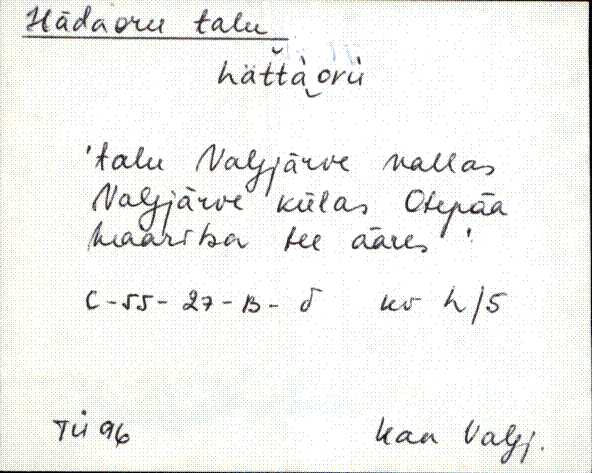 Hädaoru talu
hätta͔orù
'talu Valgjärve vallas
Valgjärve külas Otepää
Maarita tee ääres'.
C-55-27-B-δ kv h/5
TÜ 96 Kan Valgj.